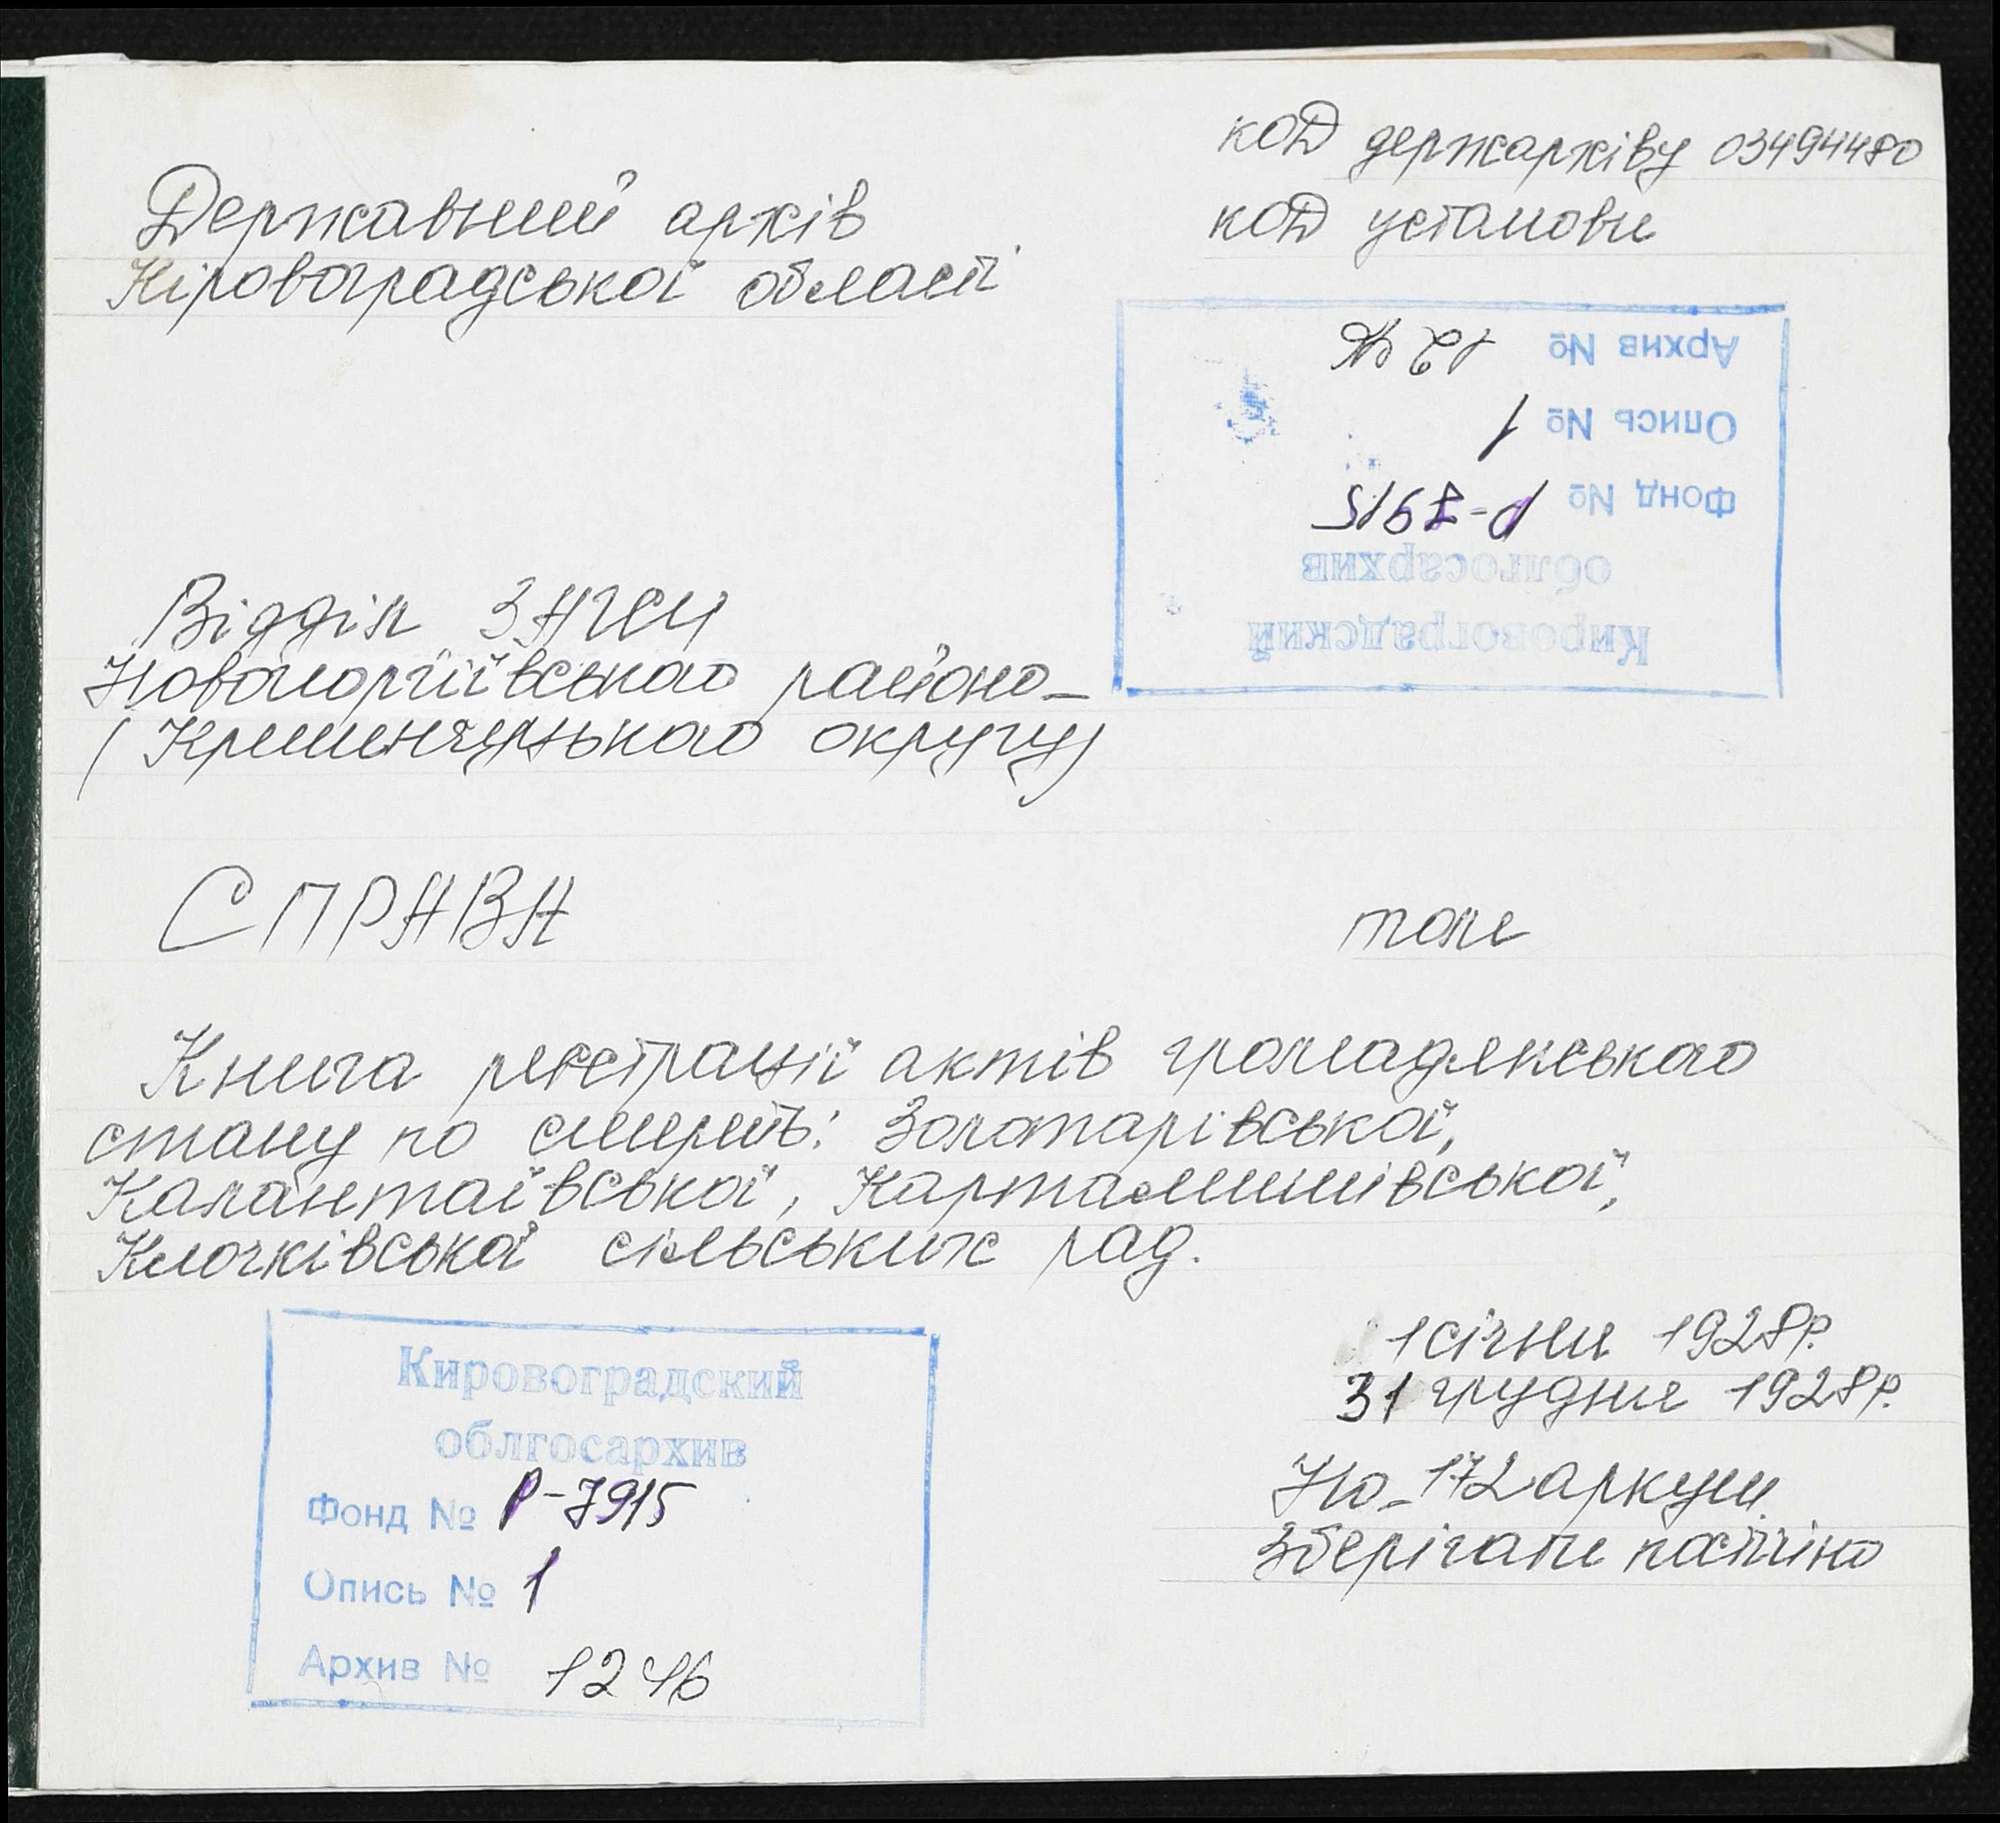 код держархіву 03494480
код установи
Державний архів
Кіровоградської області
Архив № 1246
Опись № 1
Фонд № Р-7915
облгосархив
Кировоградский
Відділ ЗАГСи
Новогеоргіївського району
(Кременчуцького округу)
СПРАВА
том
Книга реєстрації актів громадянського
стану по смерть: Золотарівської,
Калантаївської, Картамишівської,
Клочківської сільських рад.
1 січня 1928р.
31 грудня 1928р.
На 172 аркуш
Зберігати постійно
Кировоградский
облгосархив
Фонд № Р-7915
Опись № 1
Архив № 1246